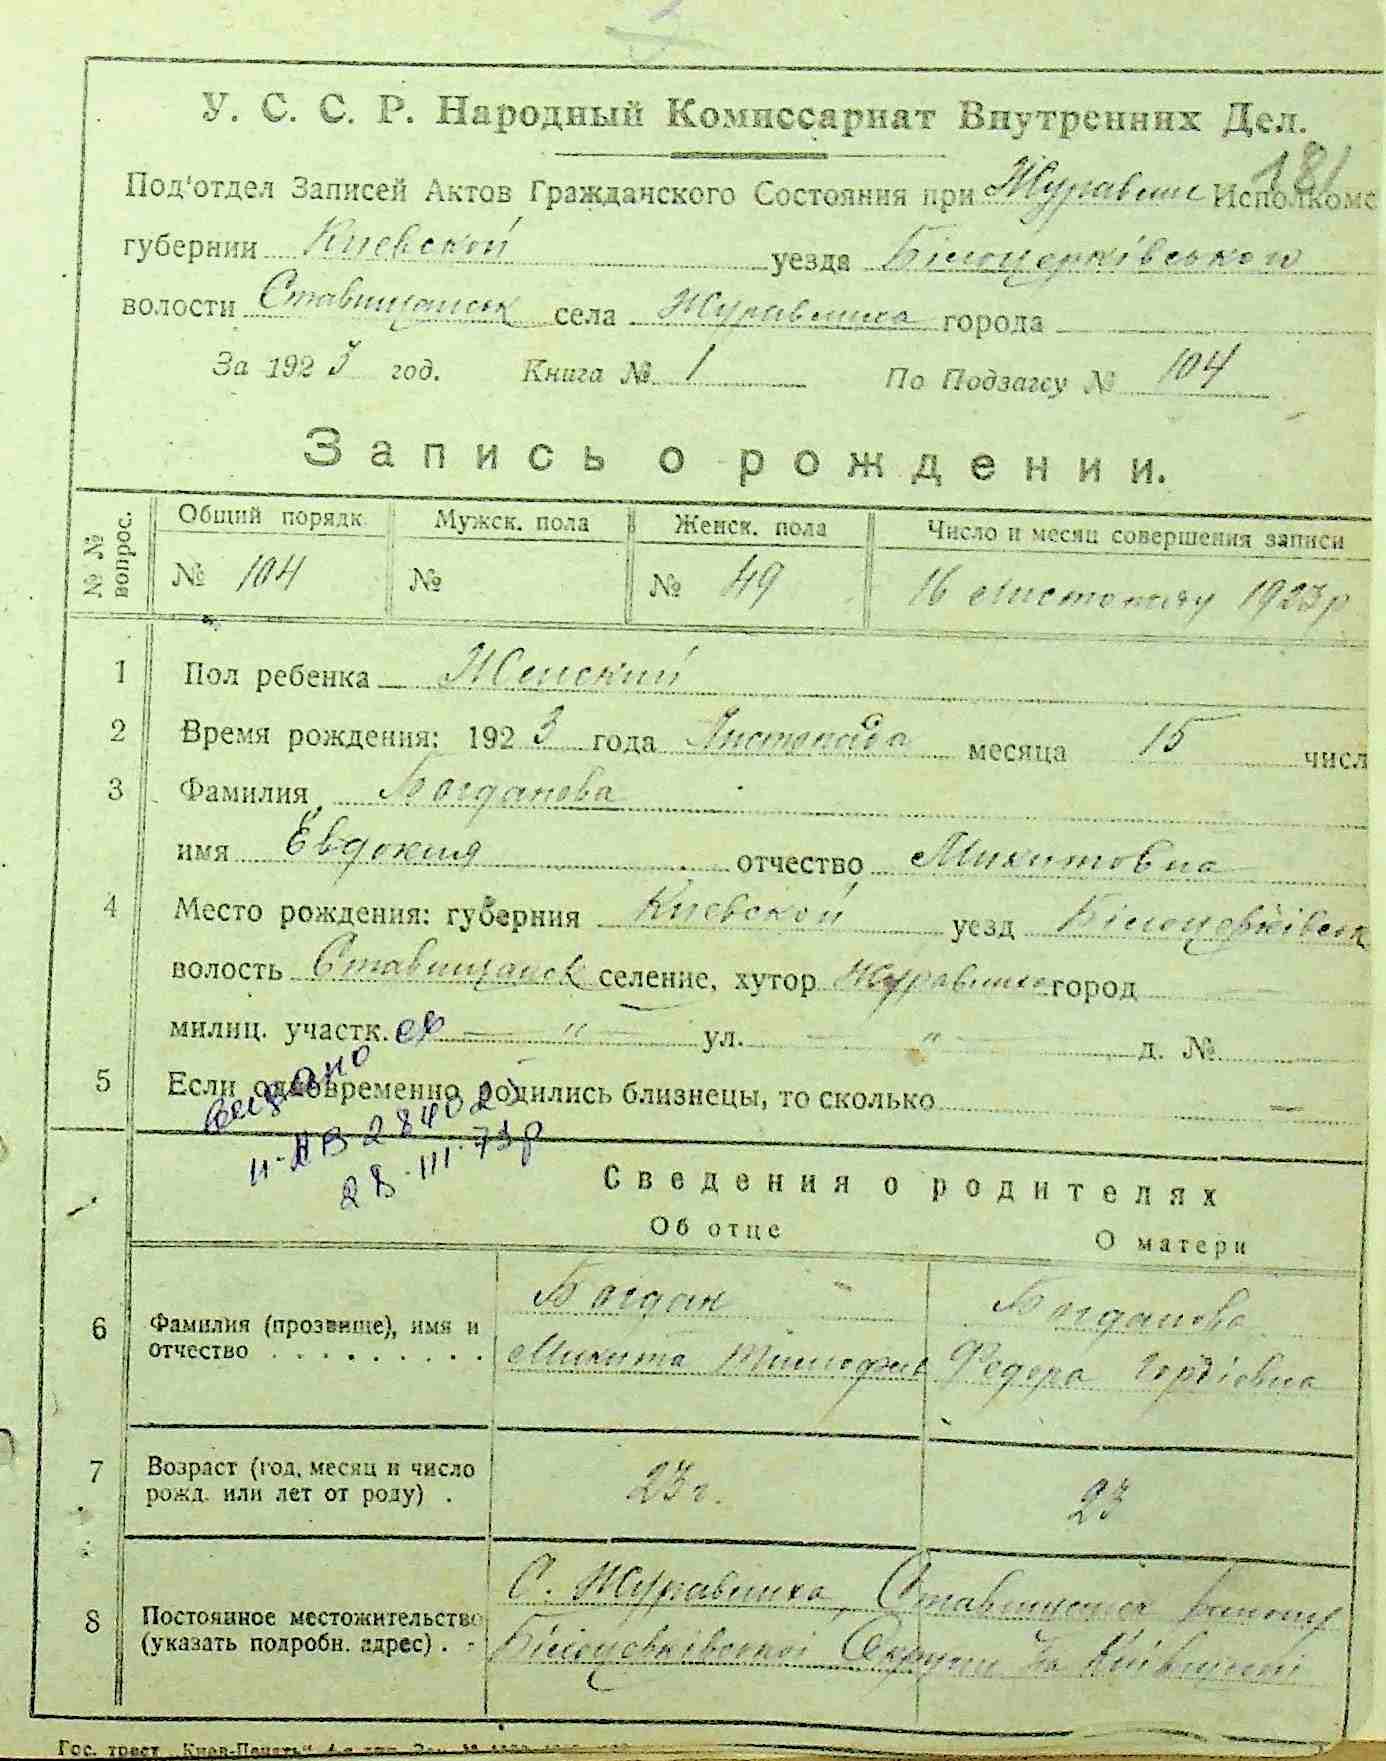 181
У. С. С. Р. Народный Комиссариат Внутренних Дел.
Под'отдел Записей Актов Гражданского Состояния при Журавлис Исполкоме
губернии Киевской уезда Білоцерківського
волости Ставищанськ села Журавлиха города
За 1923 год. Книга № 1 По Подзагсу № 104
Запись о рождении.
№ № вопрос. Общий порядк. Мужск. пола Женск. пола Число и месяц совершения записи
№ 104 № № 49 16 Листопаду 1923 р
1 Пол ребенка Женский
2 Время рождения: 1923 года Листопада месяца 15 числ
3 Фамилия Богданова
имя Евдокия отчество Микитовна
4 Место рождения: губерния Киевской уезд Білоцерківськ
волость Ставищанск селение, хутор Журавлиха город —
милиц. участк. — " — ул. — " — д. №
5 Если одновременно родились близнецы, то сколько —
видано
28·III·73р
Сведения о родителях
Об отце О матери
6 Фамилия (прозвище), имя и отчество Богдан Богданова
Микита Тимофив Федора Гордіовна
7 Возраст (год, месяц и число рожд. или лет от роду) 23 г. 23
8 Постоянное местожительство (указать подробн. адрес) С. Журавлиха, Ставищанск району
Білоцерківської Округи на Київщині
Гос. трест „Киев-Печать"